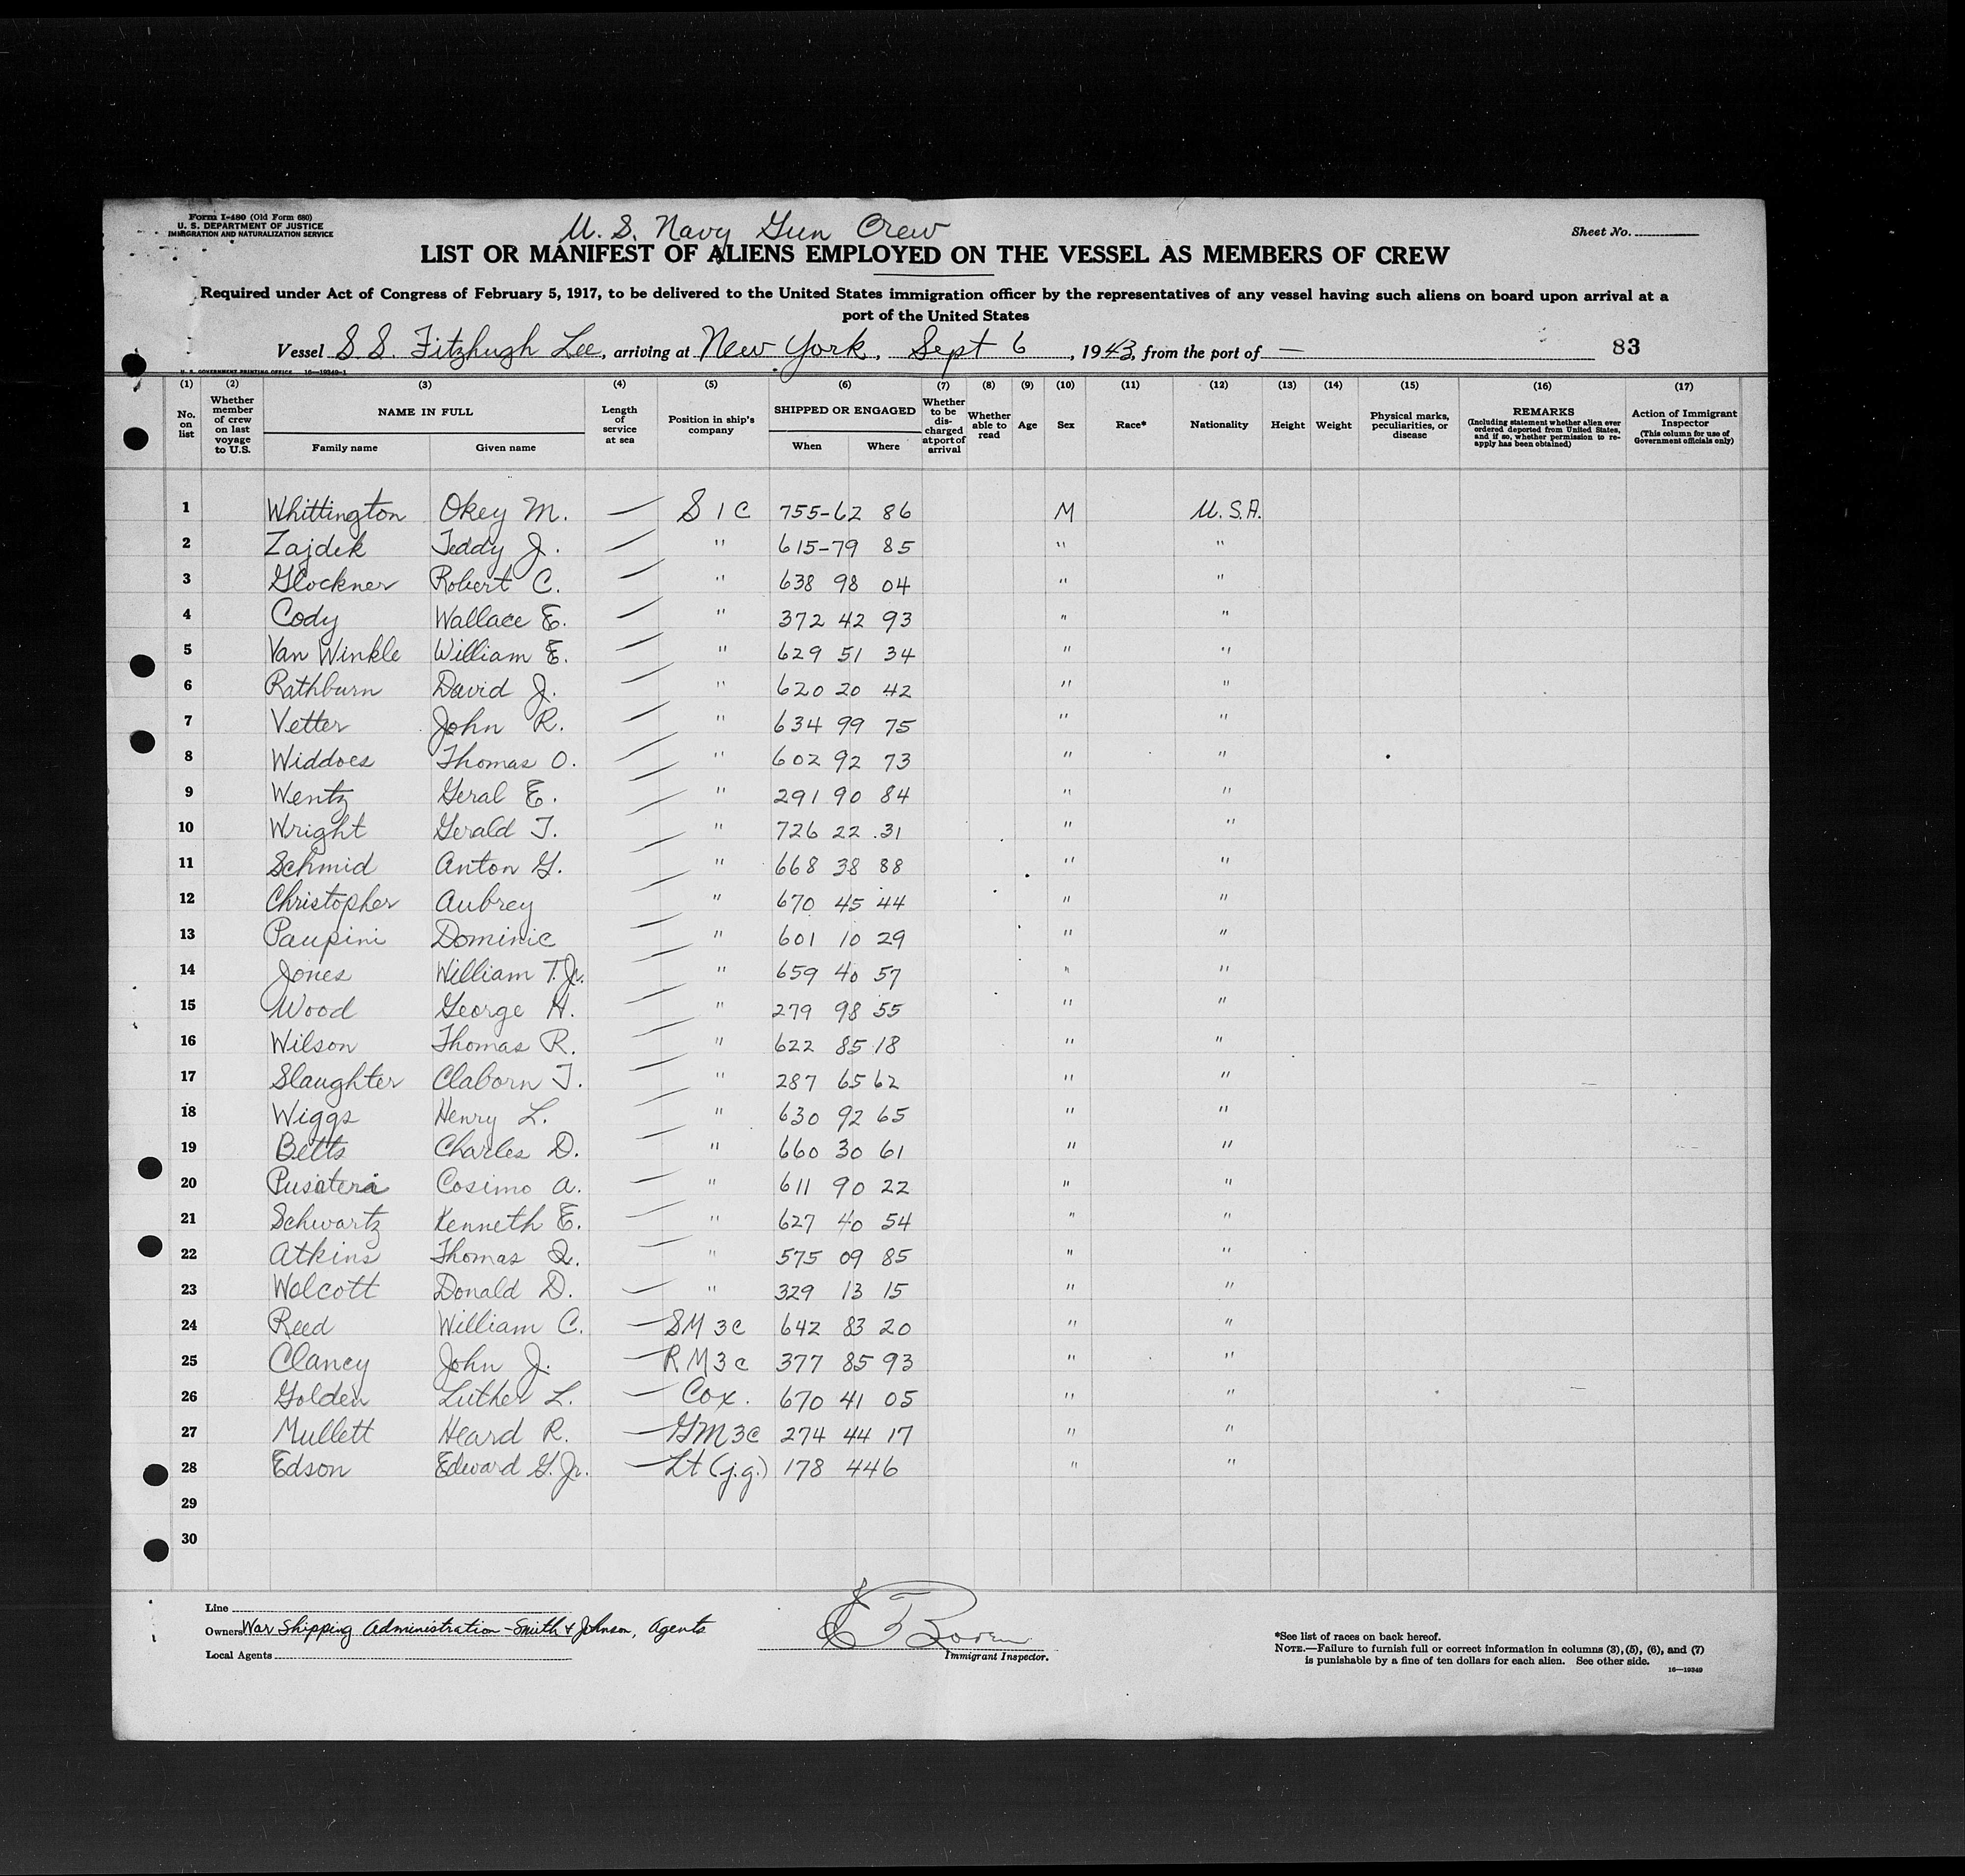 Form I-480 (Old Form 680)
U. S. DEPARTMENT OF JUSTICE
IMMIGRATION AND NATURALIZATION SERVICE
U. S. Navy Gun Crew
Sheet No.
LIST OR MANIFEST OF ALIENS EMPLOYED ON THE VESSEL AS MEMBERS OF CREW
Required under Act of Congress of February 5, 1917, to be delivered to the United States immigration officer by the representatives of any vessel having such aliens on board upon arrival at a
port of the United States
Vessel S S. Fitzhugh Lee, arriving at New York, Sept 6, 1943, from the port of — 83
U. S. GOVERNMENT PRINTING OFFICE 16—19349-1
(1) (2) (3) (4) (5) (6) (7) (8) (9) (10) (11) (12) (13) (14) (15) (16) (17)
No. on list Whether member of crew on last voyage to U.S. NAME IN FULL Family name Given name Length of service at sea Position in ship's company SHIPPED OR ENGAGED When Where Whether to be discharged at port of arrival Whether able to read Age Sex Race* Nationality Height Weight Physical marks, peculiarities, or disease REMARKS (Including statement whether alien ever ordered deported from United States, and if so, whether permission to re-apply has been obtained) Action of Immigrant Inspector (This column for use of Government officials only)
1 Whittington Okey M. — S 1 C 755-62 86 M U.S.A.
2 Zajdek Teddy J. — " 615-79 85 " "
3 Glockner Robert C. — " 638 98 04 " "
4 Cody Wallace E. — " 372 42 93 " "
5 Van Winkle William E. — " 629 51 34 " "
6 Rathburn David J. — " 620 20 42 " "
7 Vetter John R. — " 634 99 75 " "
8 Widdoes Thomas O. — " 602 92 73 " "
9 Wentz Geral E. — " 291 90 84 " "
10 Wright Gerald T. — " 726 22 31 " "
11 Schmid Anton G. — " 668 38 88 " "
12 Christopher Aubrey — " 670 45 44 " "
13 Paupini Dominic — " 601 10 29 " "
14 Jones William T. Jr. — " 659 40 57 " "
15 Wood George H. — " 279 98 55 " "
16 Wilson Thomas R. — " 622 85 18 " "
17 Slaughter Claborn T. — " 287 65 62 " "
18 Wiggs Henry L. — " 630 92 65 " "
19 Betts Charles D. — " 660 30 61 " "
20 Pusatera Cosimo A. — " 611 90 22 " "
21 Schwartz Kenneth E. — " 627 40 54 " "
22 Atkins Thomas Q. — " 575 09 85 " "
23 Wolcott Donald D. — " 329 13 15 " "
24 Reed William C. — SM 3c 642 83 20 " "
25 Clancy John J. — RM 3c 377 85 93 " "
26 Golden Luther L. — Cox. 670 41 05 " "
27 Mullett Heard R. — GM 3c 274 44 17 " "
28 Edson Edward G. Jr. — Lt (j.g.) 178 446 " "
29
30
Line
Owners War Shipping Administration - Smith & Johnson, Agents
Local Agents
Immigrant Inspector.
*See list of races on back hereof.
NOTE.—Failure to furnish full or correct information in columns (3), (5), (6), and (7)
is punishable by a fine of ten dollars for each alien. See other side.
16—19349